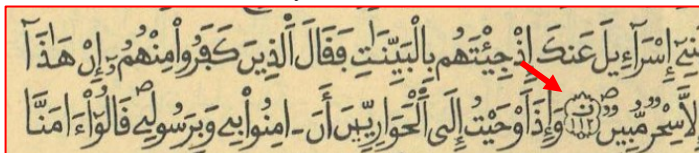 بَنِےٓ إِسْرَآءِيلَ عَنكَ إِذْ جِئْتَهُم بِالْبَيِّنَٰتِ فَقَالَ ٱلَّذِينَ كَفَرُوا۟ مِنْهُمُۥٓ إِنْ هَٰذَآ
إِلَّا سِحْرٌ مُّبِينٌ ١١٢ وَإِذَ اوْحَيْتُ إِلَى ٱلْحَوَارِيِّۦنَ أَنَ ـ امِنُوا۟ بِے وَبِرَسُولِے قَالُوٓا۟ ءَامَنَّا